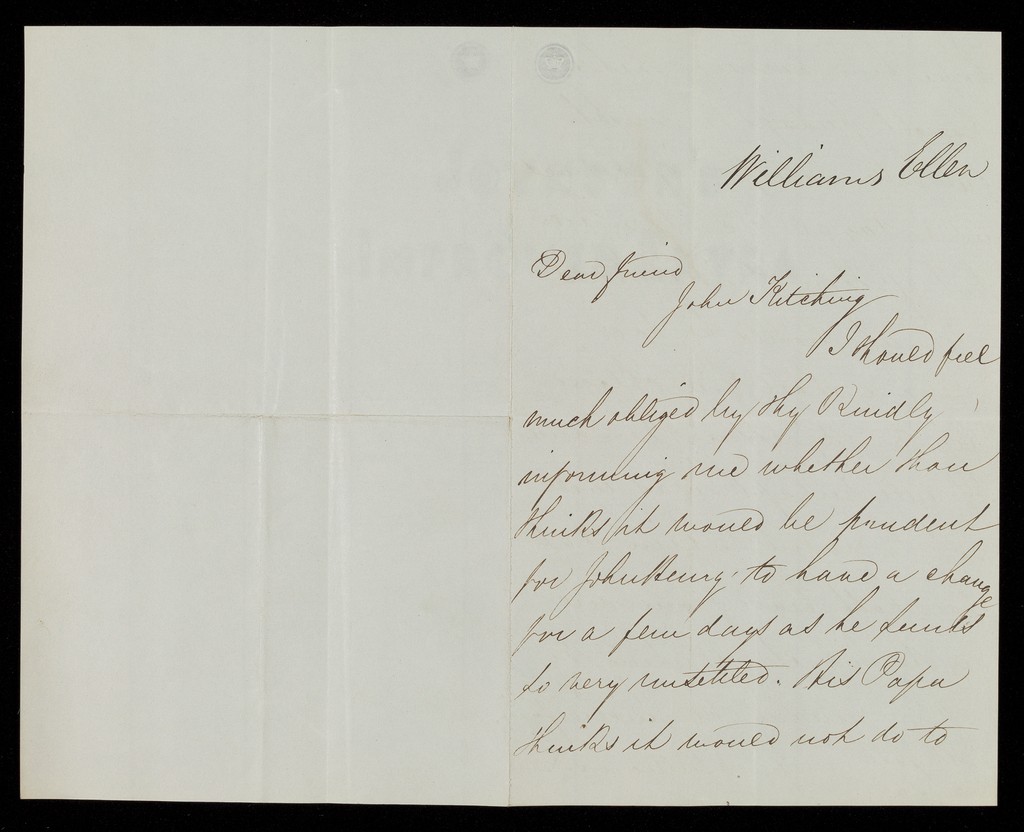 Williams Ellen
Dear friend
John Kitching
I should feel
much obliged by thy Kindly
informing me whether thou
thinks it would be prudent
for John Henry to have a change
for a few days as he seems
so very unsettled. His Papa
thinks it would not do to